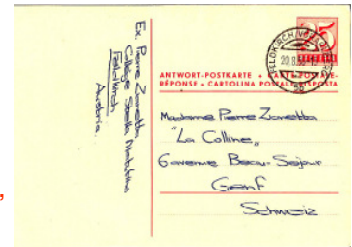 Ex. Pierre Zanetta
Collège Stella Matutina
Feldkirch
Austria.
25
FELDKIRCH
ANTWORT-POSTKARTE + CARTE POSTALE-
RÉPONSE + CARTOLINA POSTALE RISPOSTA
Madame Pierre Zanetta
"La Colline"
6 avenue Beau-Séjour
Genf
Schweiz